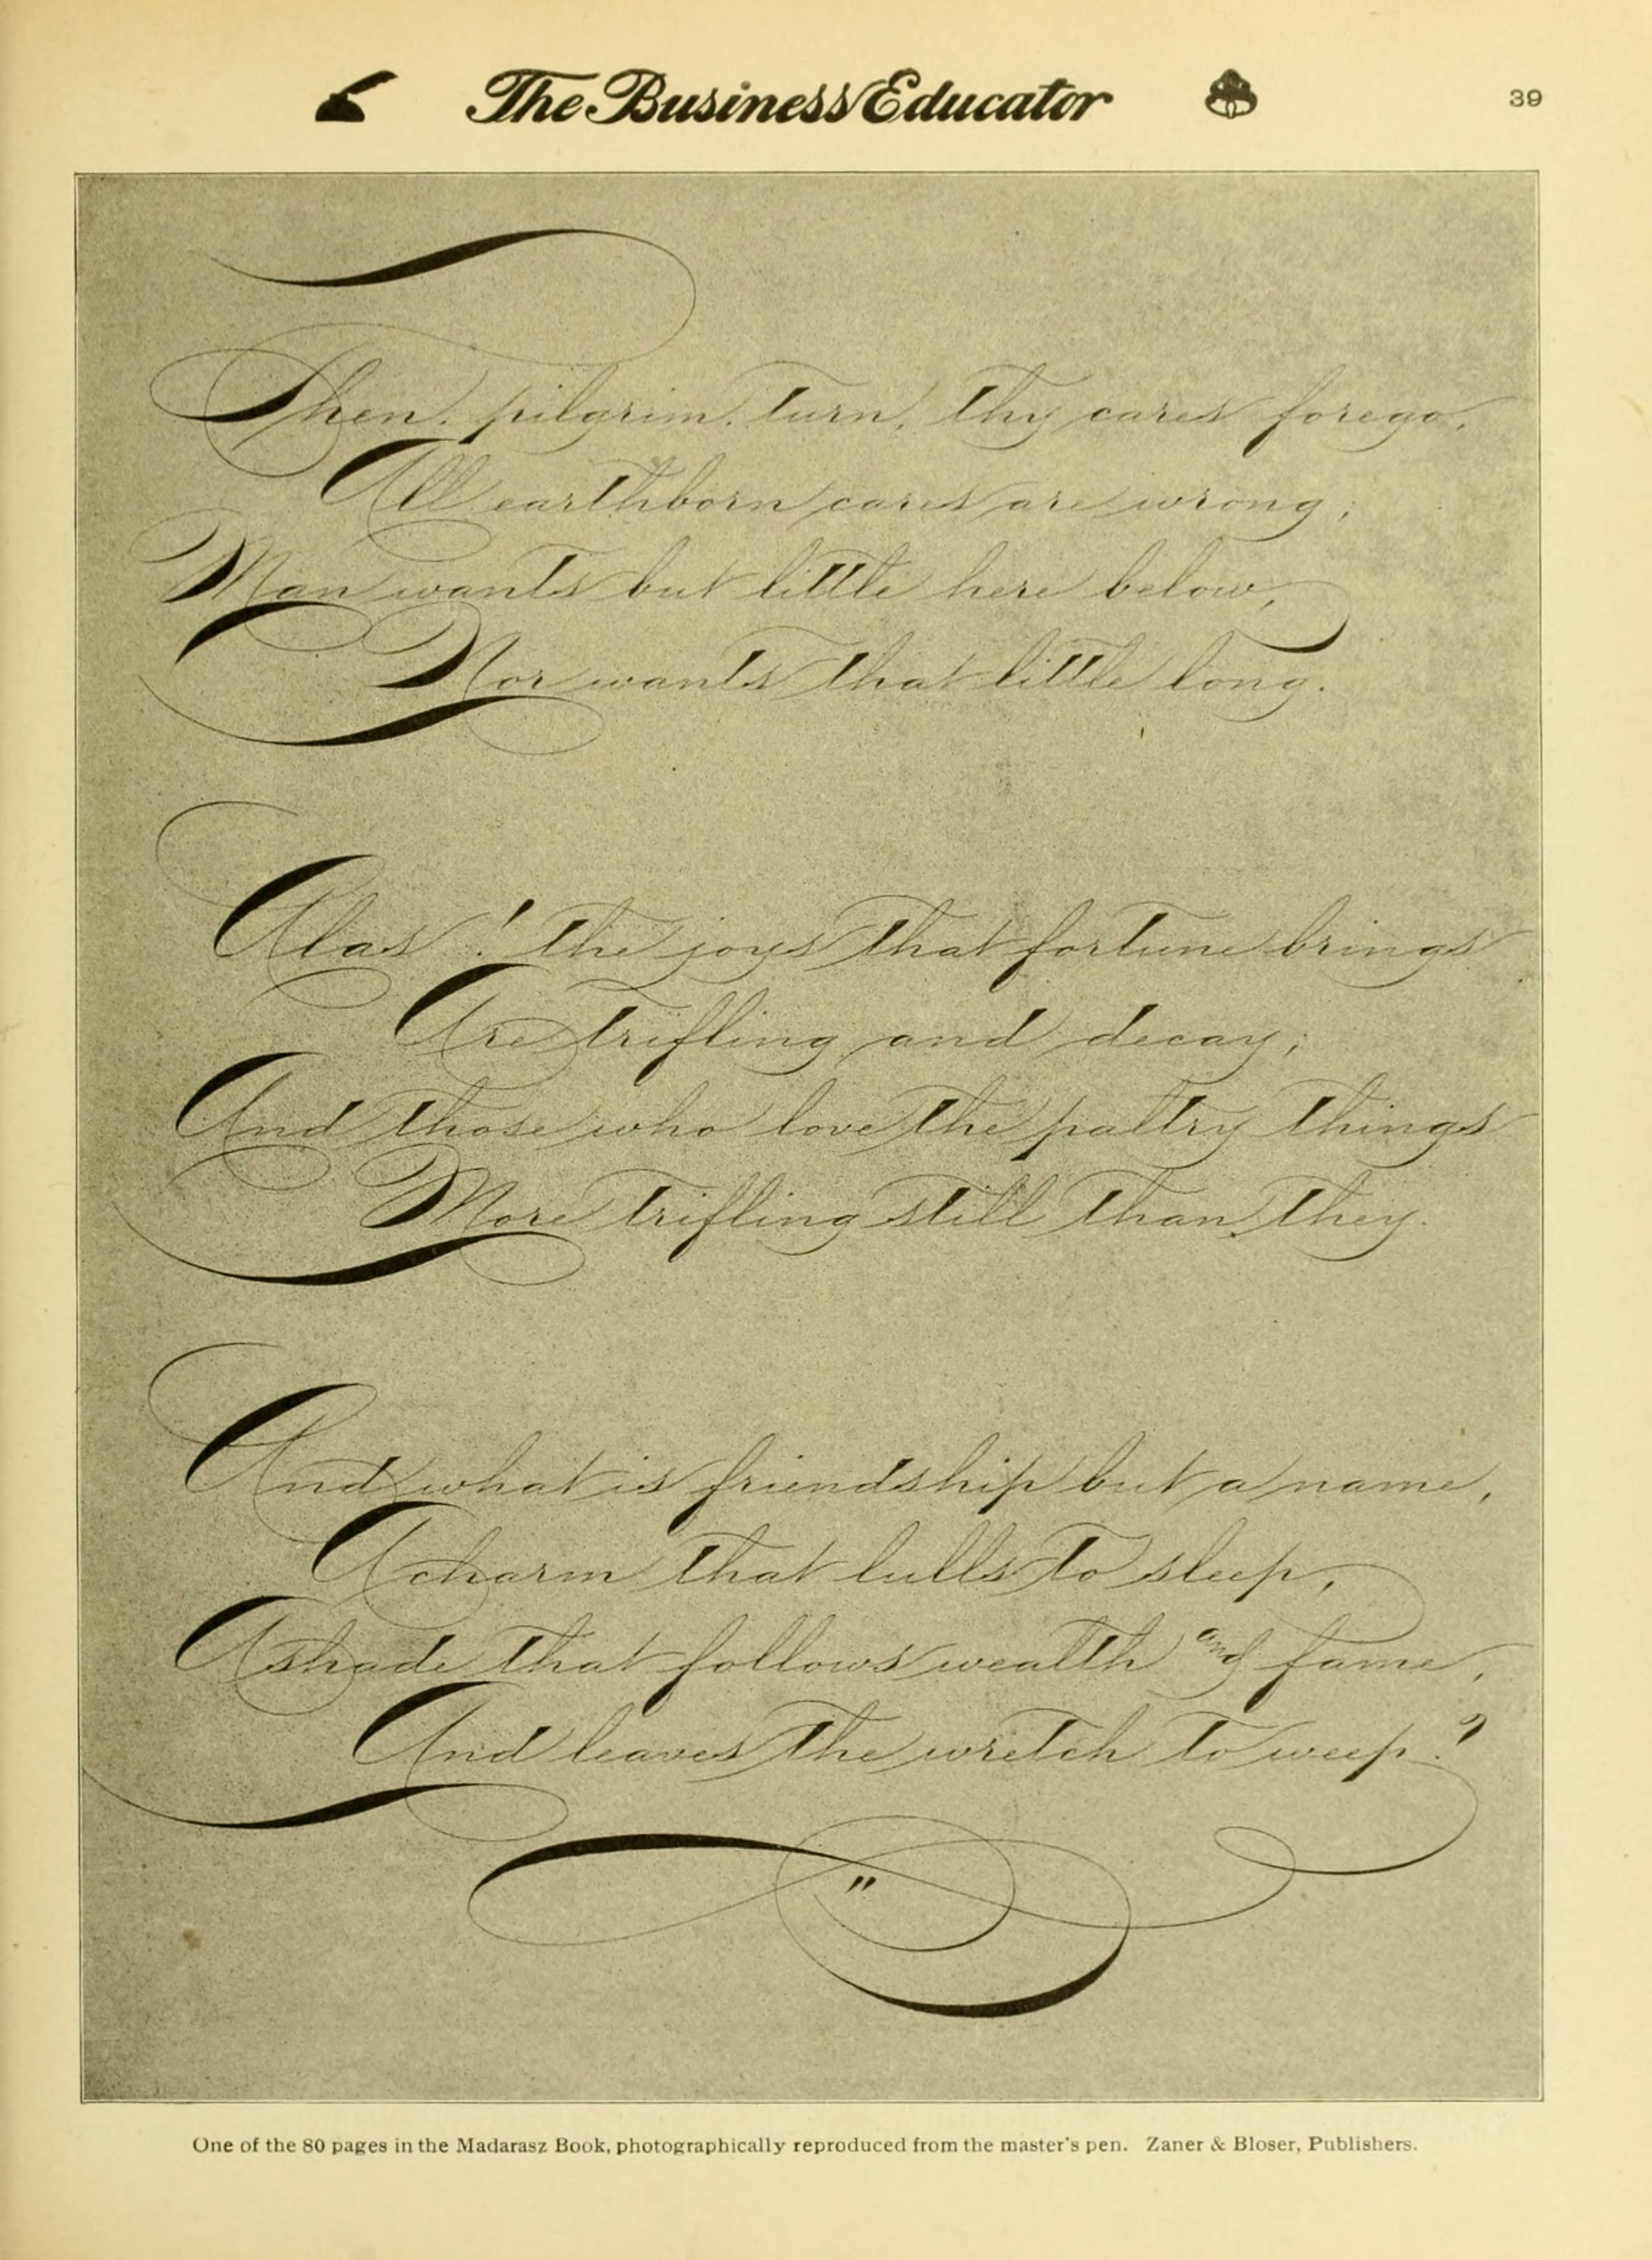 The Business Educator
39
Then, pilgrim, turn, thy cares forego,
All earthborn cares are wrong;
Man wants but little here below,
Nor wants that little long.
Alas! the joys that fortune brings
Are trifling and decay;
And those who love the paltry things
More trifling still than they.
And what is friendship but a name,
A charm that lulls to sleep,
A shade that follows wealth and fame,
And leaves the wretch to weep?
"
One of the 80 pages in the Madarasz Book, photographically reproduced from the master's pen. Zaner & Bloser, Publishers.